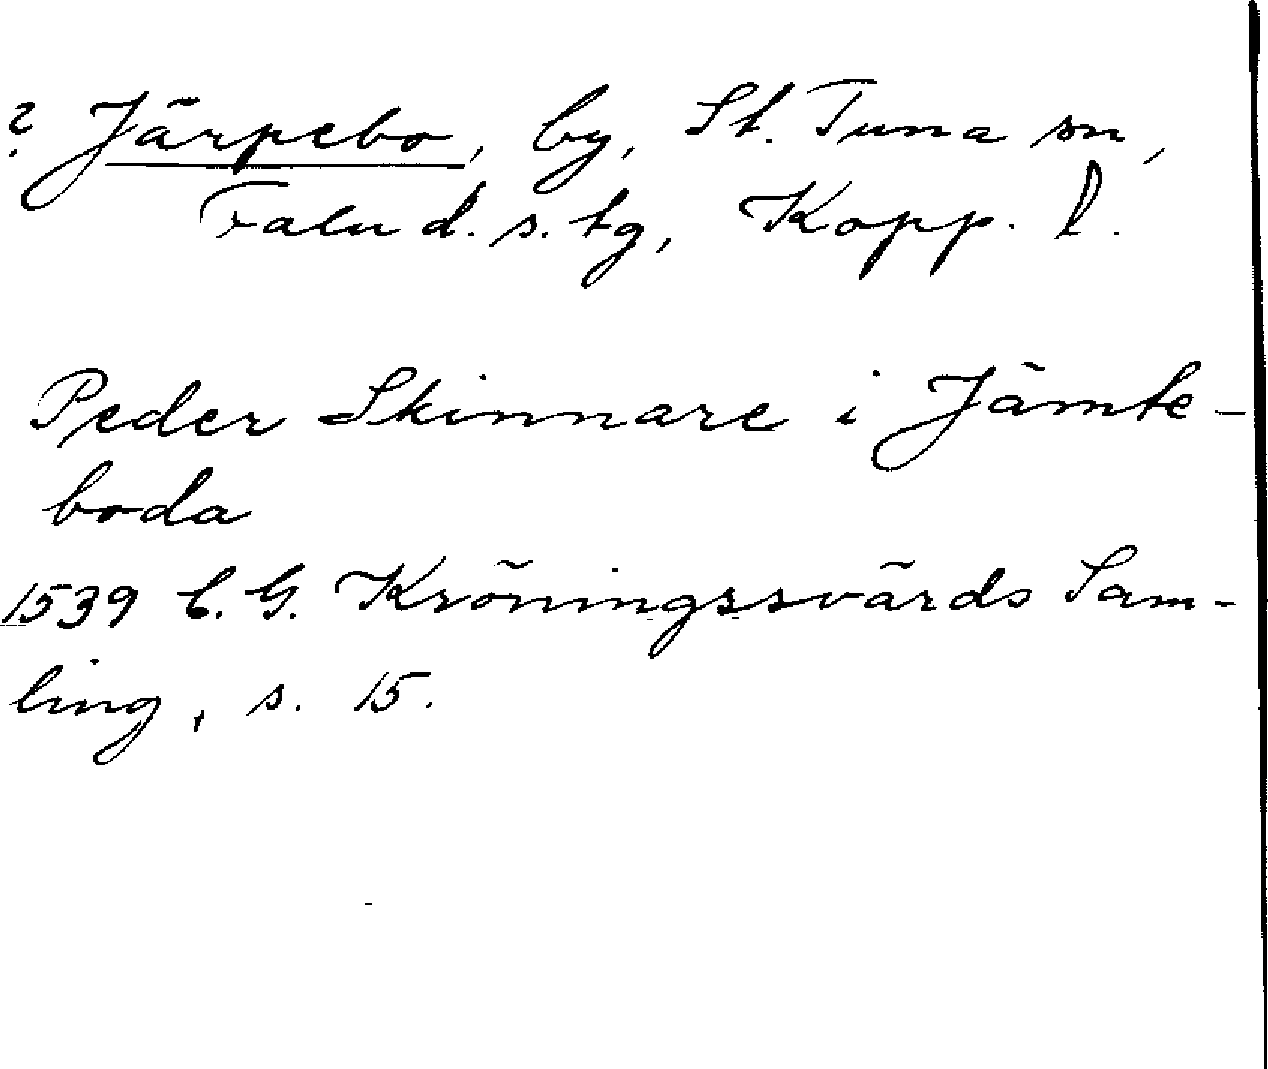 ? Järpebo, by, St. Tuna sn,
Falu d. s. tg, Kopp. l.
Peder Skinnare i Jämte-
boda
1539 C. G. Kröningssvärds Sam-
ling, s. 15.